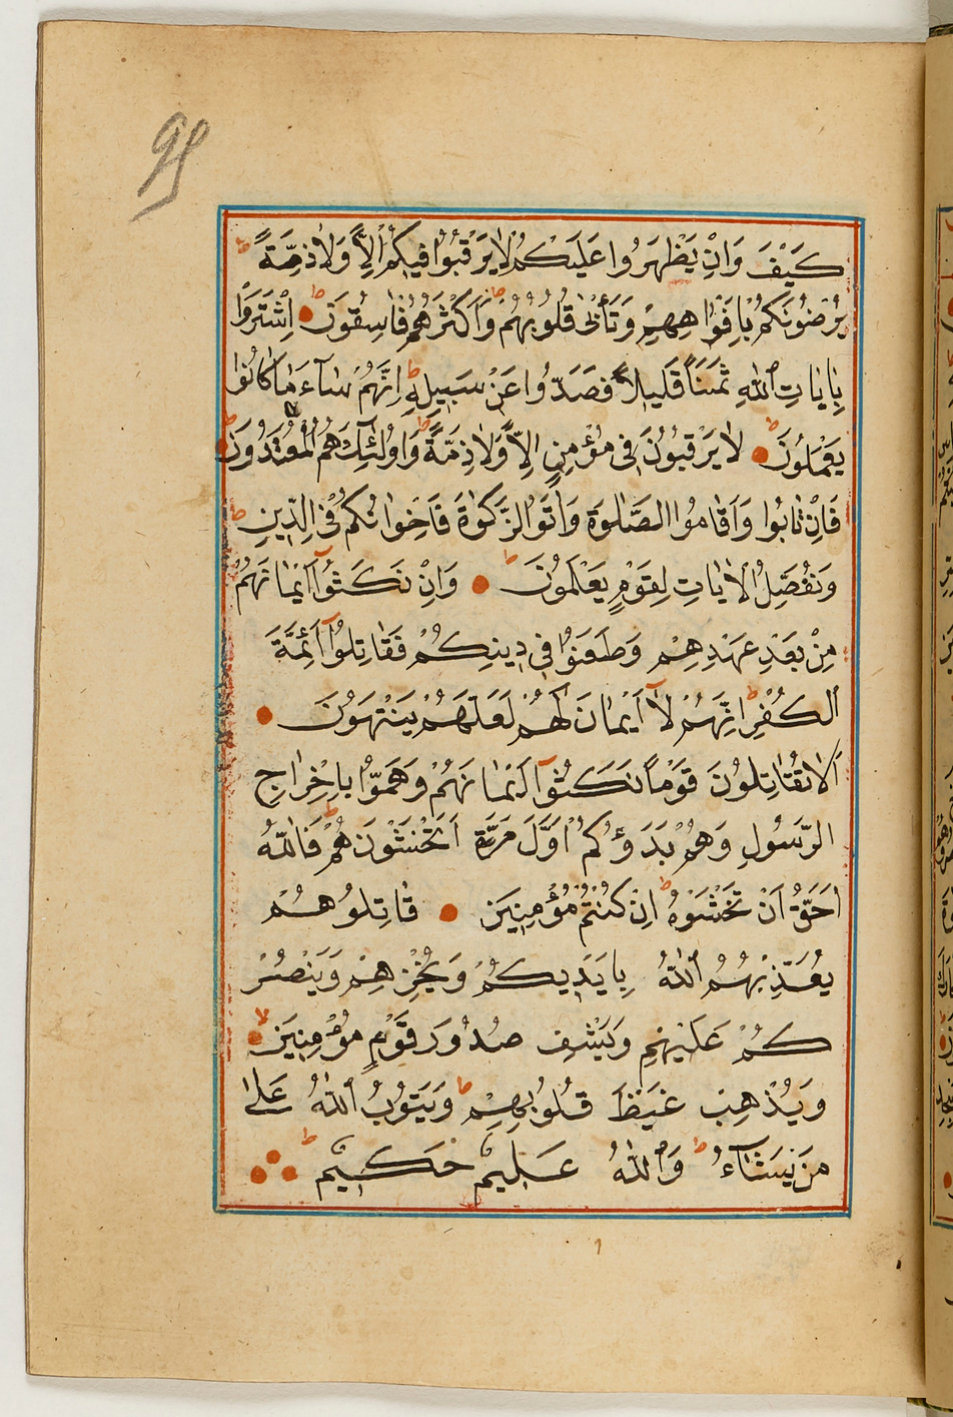 كَيْفَ وَاِنْ يَظْهَرُوا عَلَيْكُمْ لَا يَرْقُبُوا فِيكُمْ اِلًّا وَلَا ذِمَّةً ط
يُرْضُونَكُمْ بِاَفْوَاهِهِمْ وَتَأْبٰى قُلُوبُهُمْ ط وَاَكْثَرُهُمْ فَاسِقُونَ ط اِشْتَرَوْا
بِاٰيَاتِ اللّٰهِ ثَمَنًا قَلِيلًا فَصَدُّوا عَنْ سَبِيلِهِ ط اِنَّهُمْ سَآءَ مَا كَانُوا
يَعْمَلُونَ ط لَا يَرْقُبُونَ فِى مُؤْمِنٍ اِلًّا وَلَا ذِمَّةً ط وَاُولٰئِكَ هُمُ الْمُعْتَدُونَ ط
فَاِنْ تَابُوا وَاَقَامُوا الصَّلٰوةَ وَاٰتَوُا الزَّكٰوةَ فَاِخْوَانُكُمْ فِى الدِّينِ ط
وَنُفَصِّلُ الْاٰيَاتِ لِقَوْمٍ يَعْلَمُونَ ط وَاِنْ نَكَثُوٓا اَيْمَانَهُمْ
مِنْ بَعْدِ عَهْدِهِمْ وَطَعَنُوا فِى دِينِكُمْ فَقَاتِلُوٓا اَئِمَّةَ
الْكُفْرِ ط اِنَّهُمْ لَآ اَيْمَانَ لَهُمْ لَعَلَّهُمْ يَنْتَهُونَ
اَلَا تُقَاتِلُونَ قَوْمًا نَكَثُوٓا اَيْمَانَهُمْ وَهَمُّوا بِاِخْرَاجِ
الرَّسُولِ وَهُمْ بَدَؤُكُمْ اَوَّلَ مَرَّةٍ ط اَتَخْشَوْنَهُمْ فَاللّٰهُ
اَحَقُّ اَنْ تَخْشَوْهُ ط اِنْ كُنْتُمْ مُؤْمِنِينَ قَاتِلُوهُمْ
يُعَذِّبْهُمُ اللّٰهُ بِاَيْدِيكُمْ وَيُخْزِهِمْ وَيَنْصُرْ
كُمْ عَلَيْهِمْ وَيَشْفِ صُدُورَ قَوْمٍ مُؤْمِنِينَ لا
وَيُذْهِبْ غَيْظَ قُلُوبِهِمْ ط وَيَتُوبُ اللّٰهُ عَلٰى
مَنْ يَشَآءُ ط وَاللّٰهُ عَلِيمٌ حَكِيمٌ ط